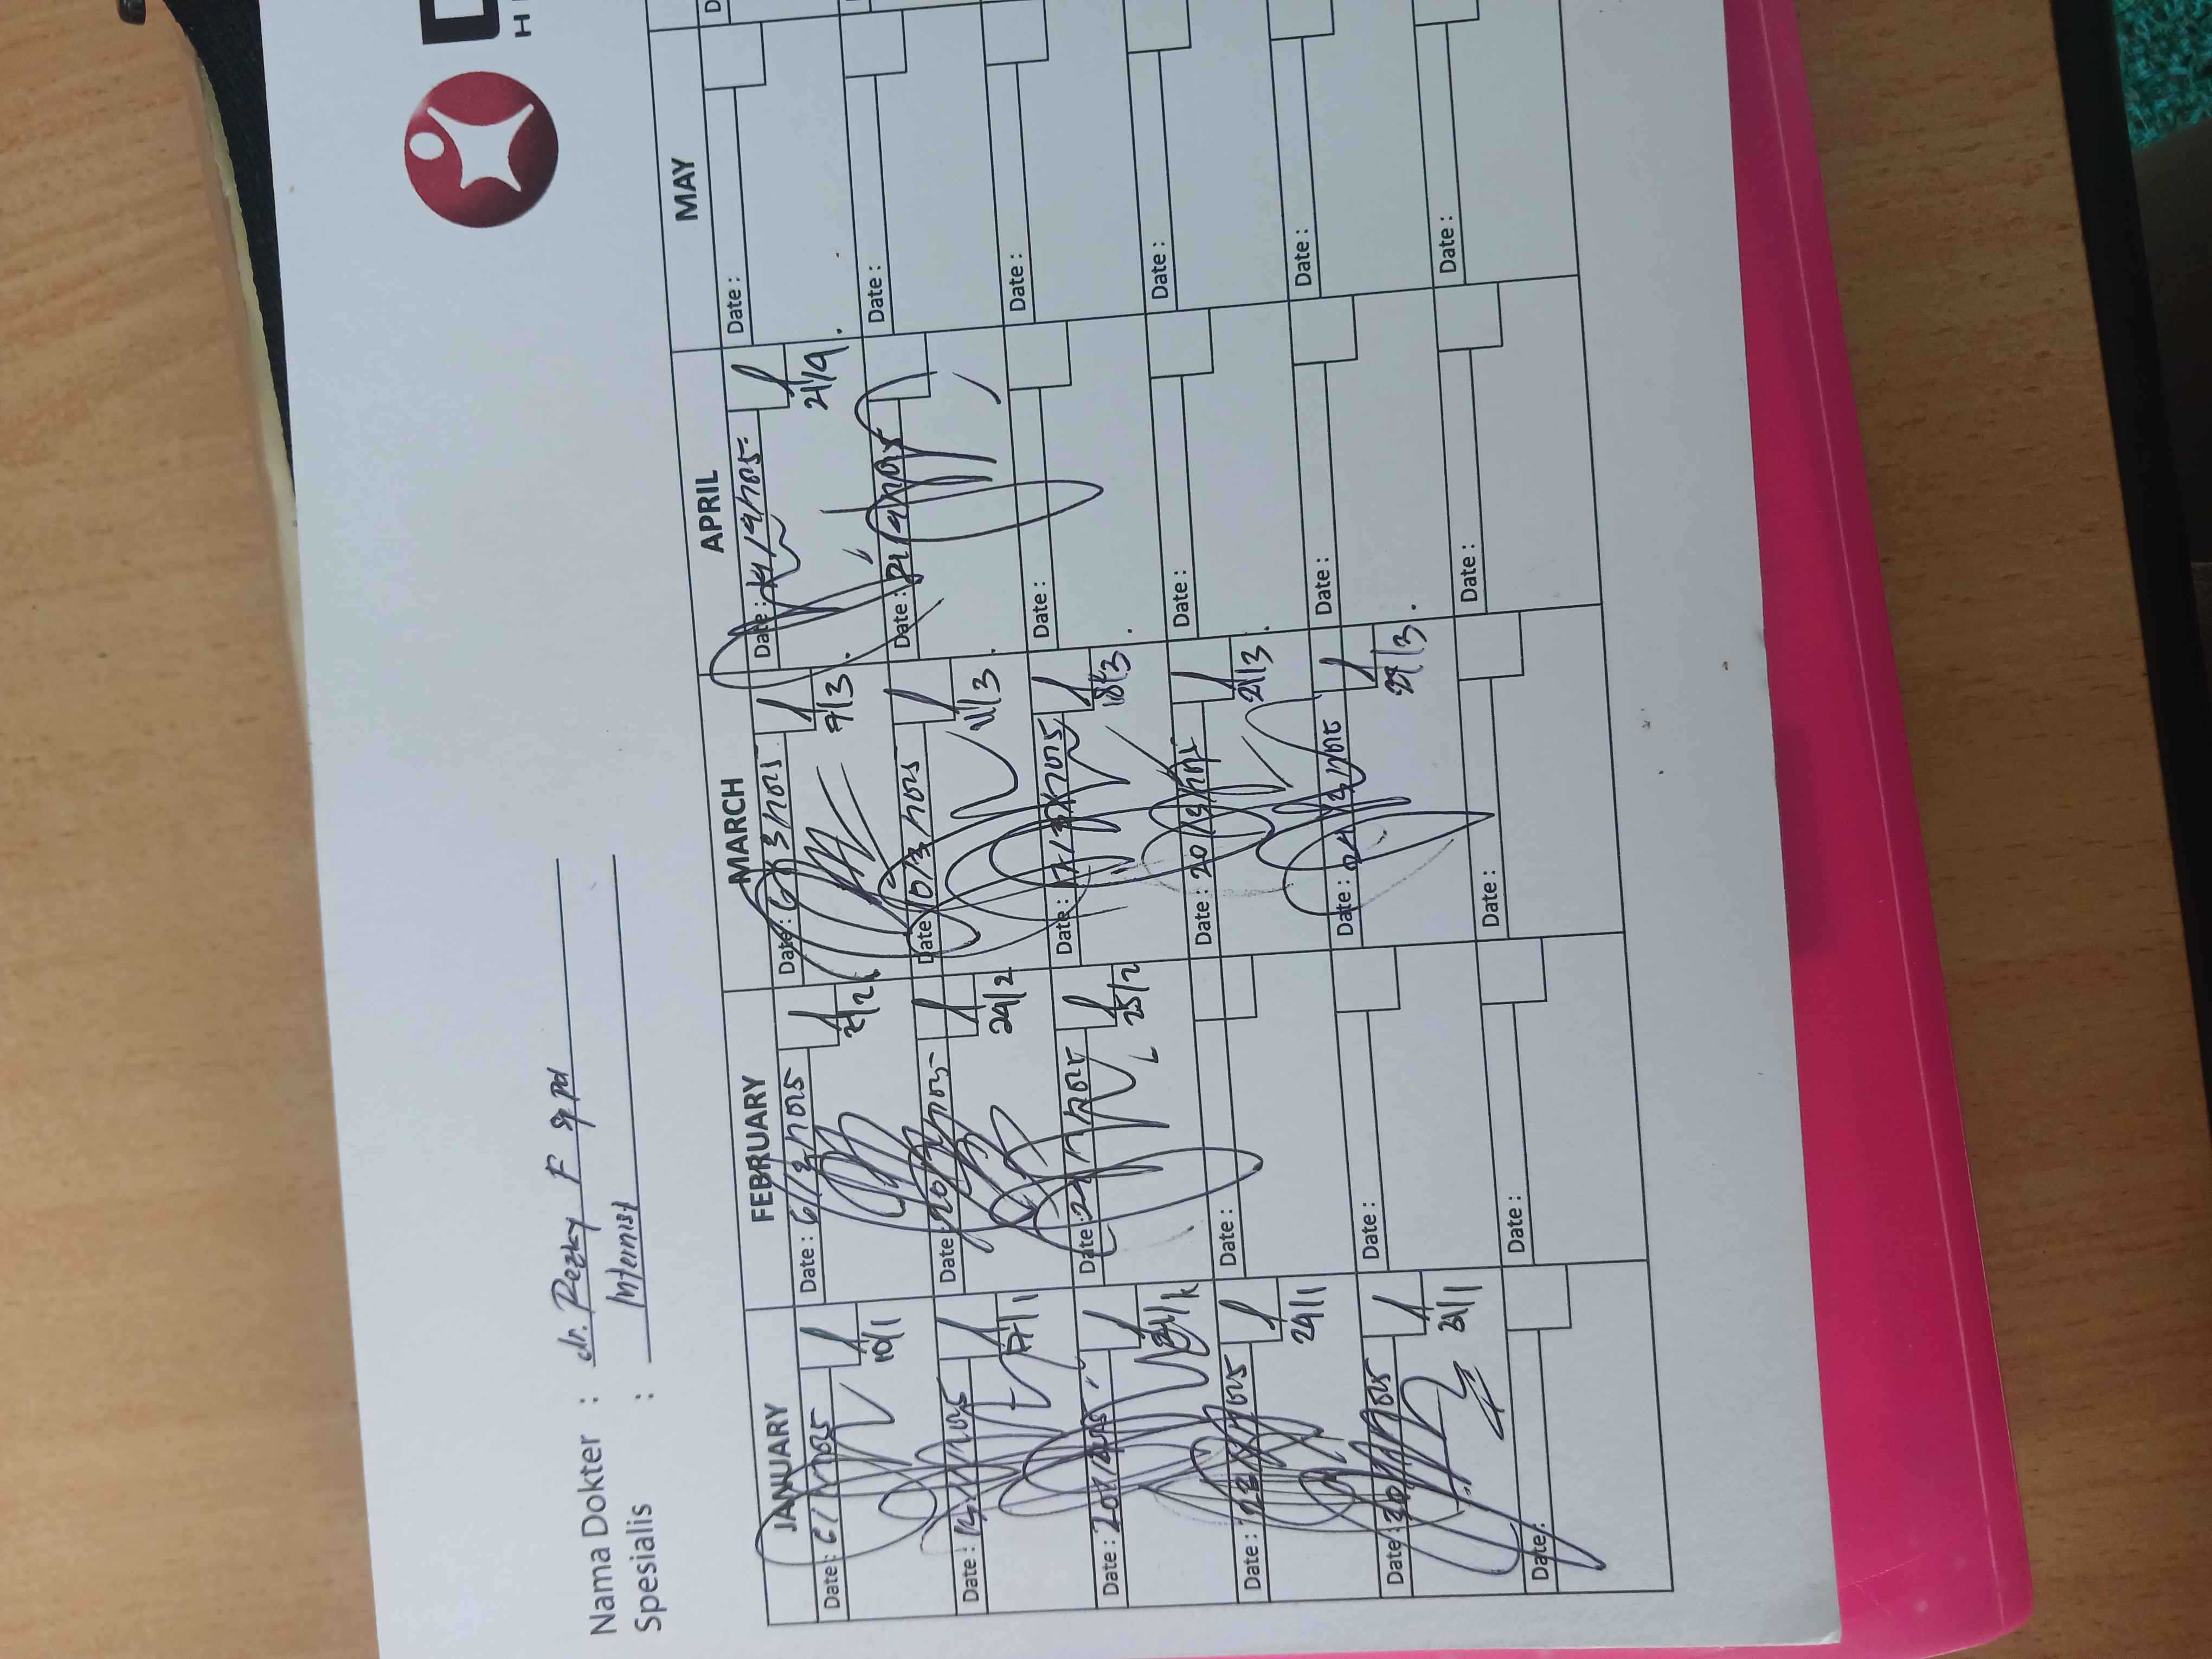 D
H
Nama Dokter : dr. Rezky F Sp pd
Spesialis : Internist
JANUARY FEBRUARY MARCH APRIL MAY
Date : 6/1/2025 Date : 6/2/2025 Date : 6/3/2025 Date : /4/2025 Date : D
10/1 21/2 7/3 21/4
Date : Date : 20/2/2025 Date : 10/3/2025 Date : 21/4/2025 Date :
17/1 24/2 11/3
Date : 20/1/2025 Date : 24/2/2025 Date : 17/3/2025 Date : Date :
21/1 25/2 18/3
Date : Date : Date : 20/3/2025 Date : Date :
24/1 21/3
Date : 30/1/2025 Date : Date : 24/3/2025 Date : Date :
31/1
Date : Date : Date : Date : Date :